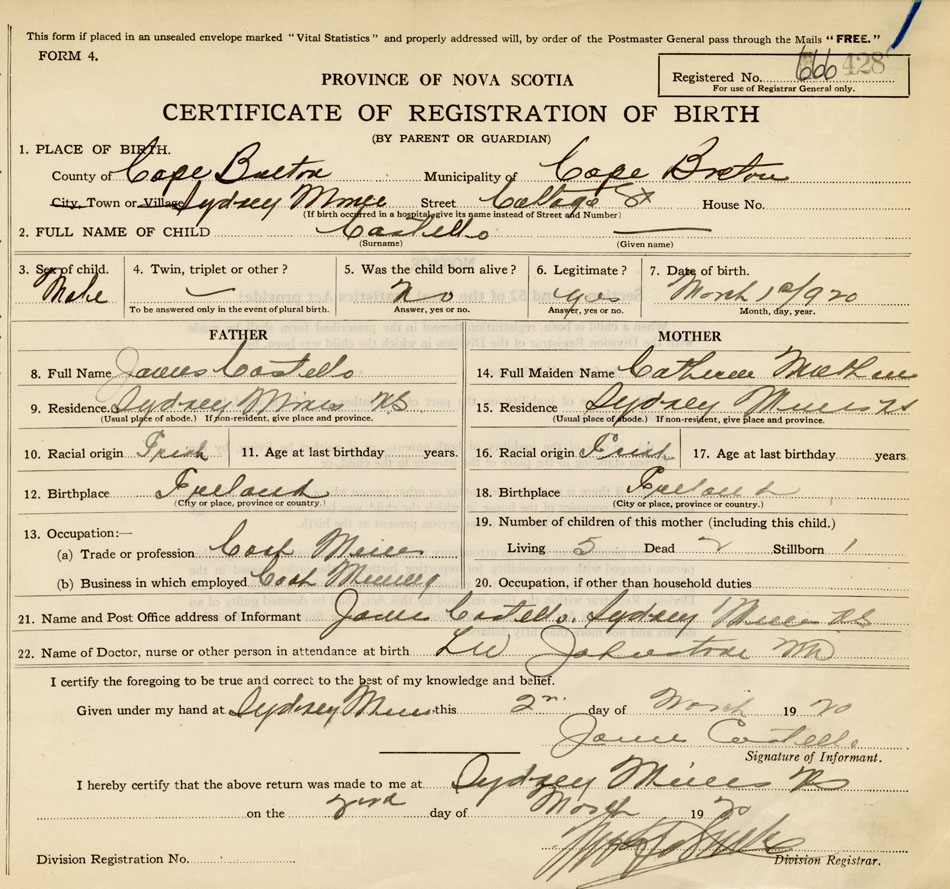 This form if placed in an unsealed envelope marked "Vital Statistics" and properly addressed will, by order of the Postmaster General pass through the Mails "FREE."
FORM 4.
Registered No. 666 428
For use of Registrar General only.
PROVINCE OF NOVA SCOTIA
CERTIFICATE OF REGISTRATION OF BIRTH
(BY PARENT OR GUARDIAN)
1. PLACE OF BIRTH.
County of Cape Breton Municipality of Cape Breton
City, Town or Village Sydney Mines Street Cottage St House No.
(If birth occurred in a hospital, give its name instead of Street and Number)
2. FULL NAME OF CHILD Costello —
(Surname) (Given name)
3. Sex of child. 4. Twin, triplet or other? 5. Was the child born alive? 6. Legitimate? 7. Date of birth.
Male — No yes March 1920
To be answered only in the event of plural birth. Answer, yes or no. Answer, yes or no. Month, day, year.
FATHER MOTHER
8. Full Name James Costello 14. Full Maiden Name Catherine
9. Residence. Sydney Mines NS 15. Residence Sydney Mines NS
(Usual place of abode.) If non-resident, give place and province. (Usual place of abode.) If non-resident, give place and province.
10. Racial origin Irish 11. Age at last birthday years. 16. Racial origin Irish 17. Age at last birthday years.
12. Birthplace Ireland 18. Birthplace Ireland
(City or place, province or country.) (City or place, province or country.)
13. Occupation:— 19. Number of children of this mother (including this child.)
(a) Trade or profession Coal Miner Living 5 Dead 2 Stillborn 1
(b) Business in which employed Coal Mining 20. Occupation, if other than household duties
21. Name and Post Office address of Informant James Costello. Sydney Mines NS
22. Name of Doctor, nurse or other person in attendance at birth LW Johnstone MD
I certify the foregoing to be true and correct to the best of my knowledge and belief.
Given under my hand at Sydney Mines this day of March 1920
James Costello
Signature of Informant.
I hereby certify that the above return was made to me at Sydney Mines NS
on the day of March 1920
Division Registration No. Division Registrar.